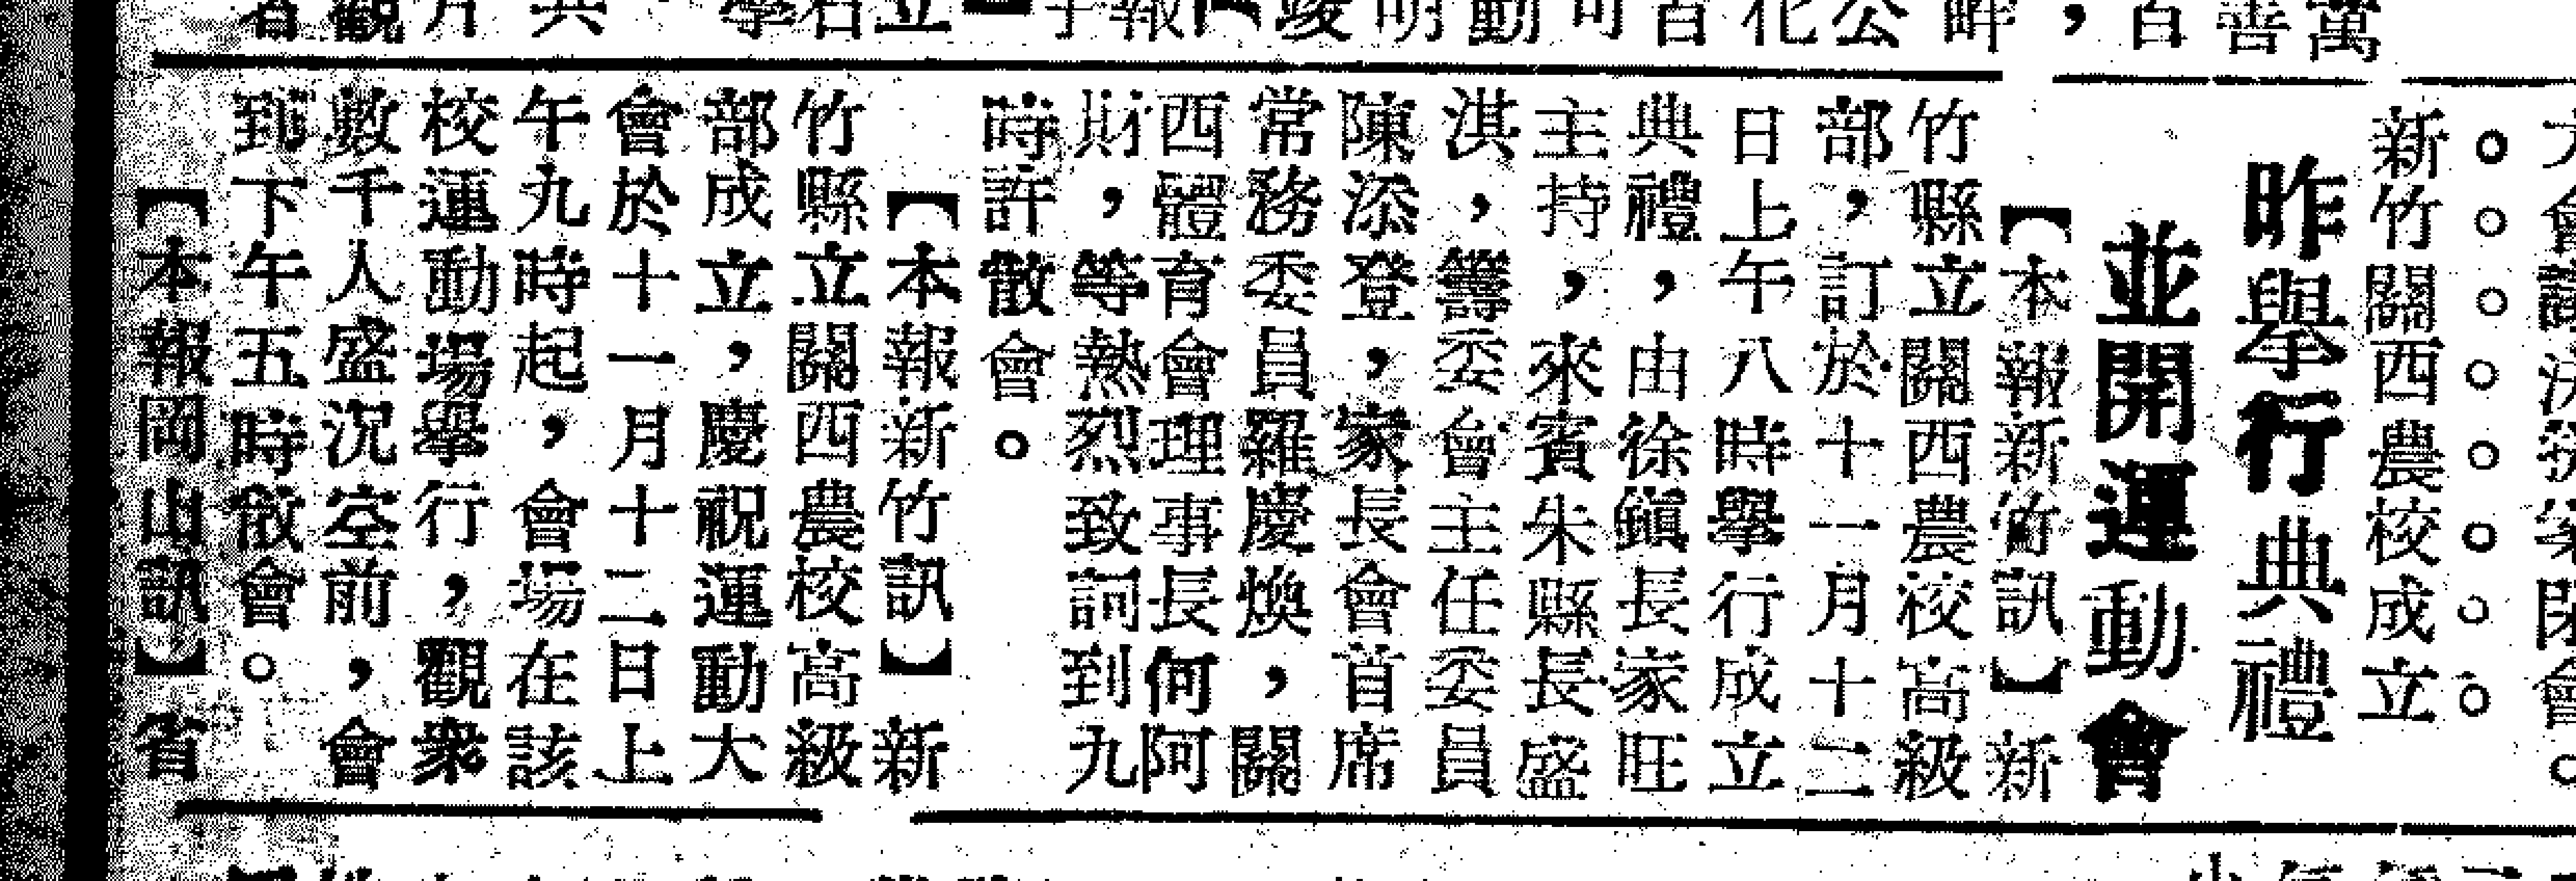 新竹關西農校成立
昨擧行典禮
並開運動會
【本報新竹訊】新
竹縣立關西農校高級
部，訂於十一月十二
日上午八時擧行成立
典禮，由徐鎭長家旺
主持，來賓朱縣長盛
淇，籌委會主任委員
陳添登，家長會首席
常務委員羅慶煥，關
西體育會理事長何阿
財，等熱烈致詞到九
時許散會。
【本報新竹訊】新
竹縣立關西農校高級
部成立，慶祝運動大
會於十一月十二日上
午九時起，會場在該
校運動場擧行，觀衆
數千人盛況空前，會
到下午五時散會。
【本報岡山訊】省